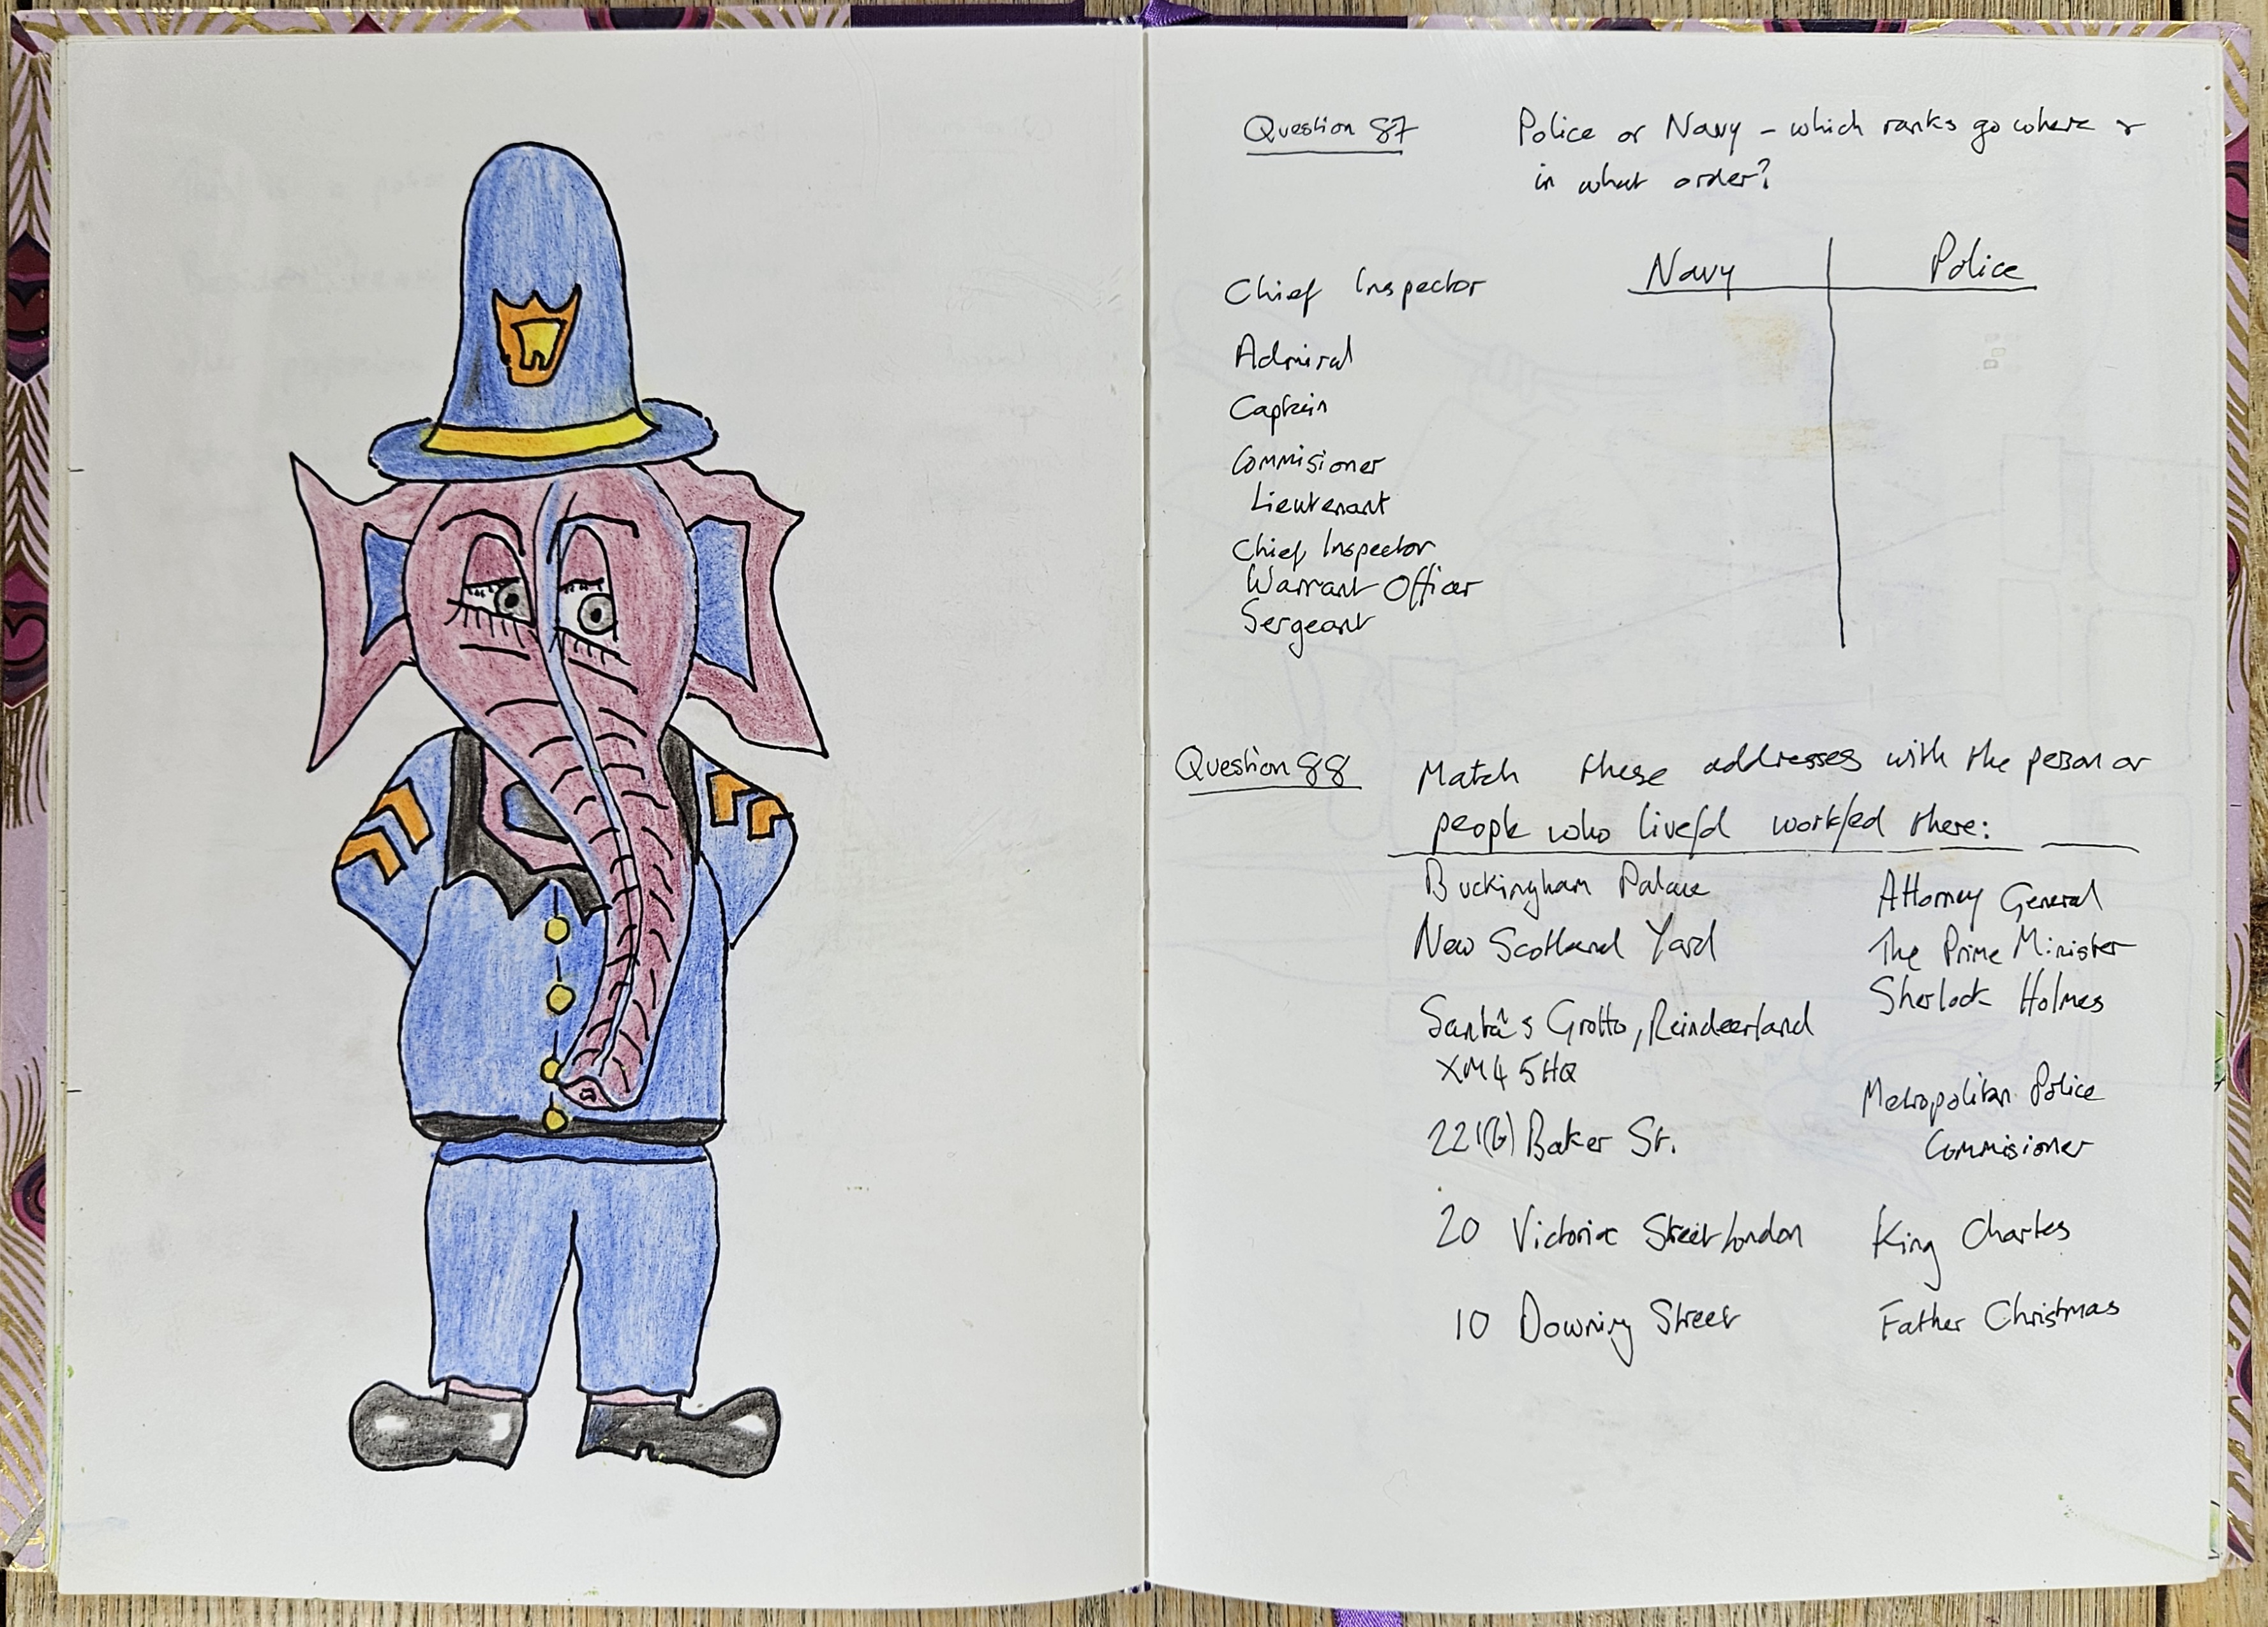 Question 87 Police or Navy - which ranks go where &
in what order?
Navy Police
Chief Inspector
Admiral
Captain
Commisioner
Lieutenant
Chief Inspector
Warrant Officer
Sergeant
Question 88 Match these addresses with the person or
people who live/d work/ed there:
Buckingham Palace
New Scotland Yard
Santa's Grotto, Reindeerland
XM4 5HQ
221(b) Baker St.
20 Victoria Street London
10 Downing Street
Attorney General
The Prime Minister
Sherlock Holmes
Metropolitan Police
Commisioner
King Charles
Father Christmas